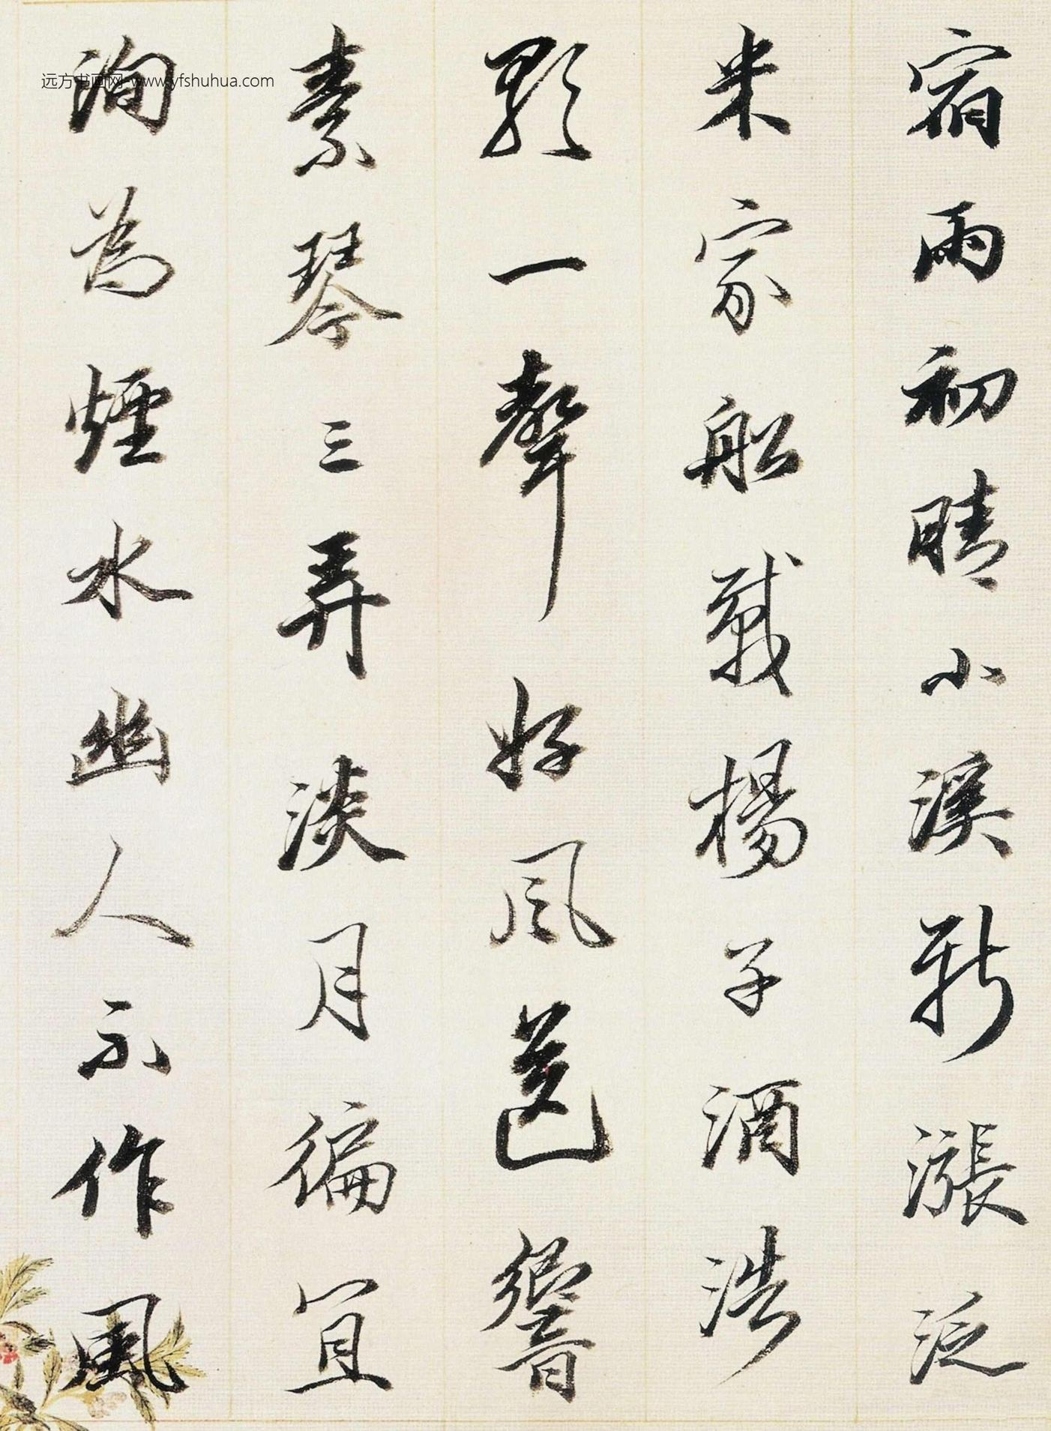 宿雨初晴小溪新漲泛
米家船載楊子酒浩
歌一聲好風送響
素琴三弄淡月徧宜
洵為煙水幽人不作風
远方书画网-www.yfshuhua.com